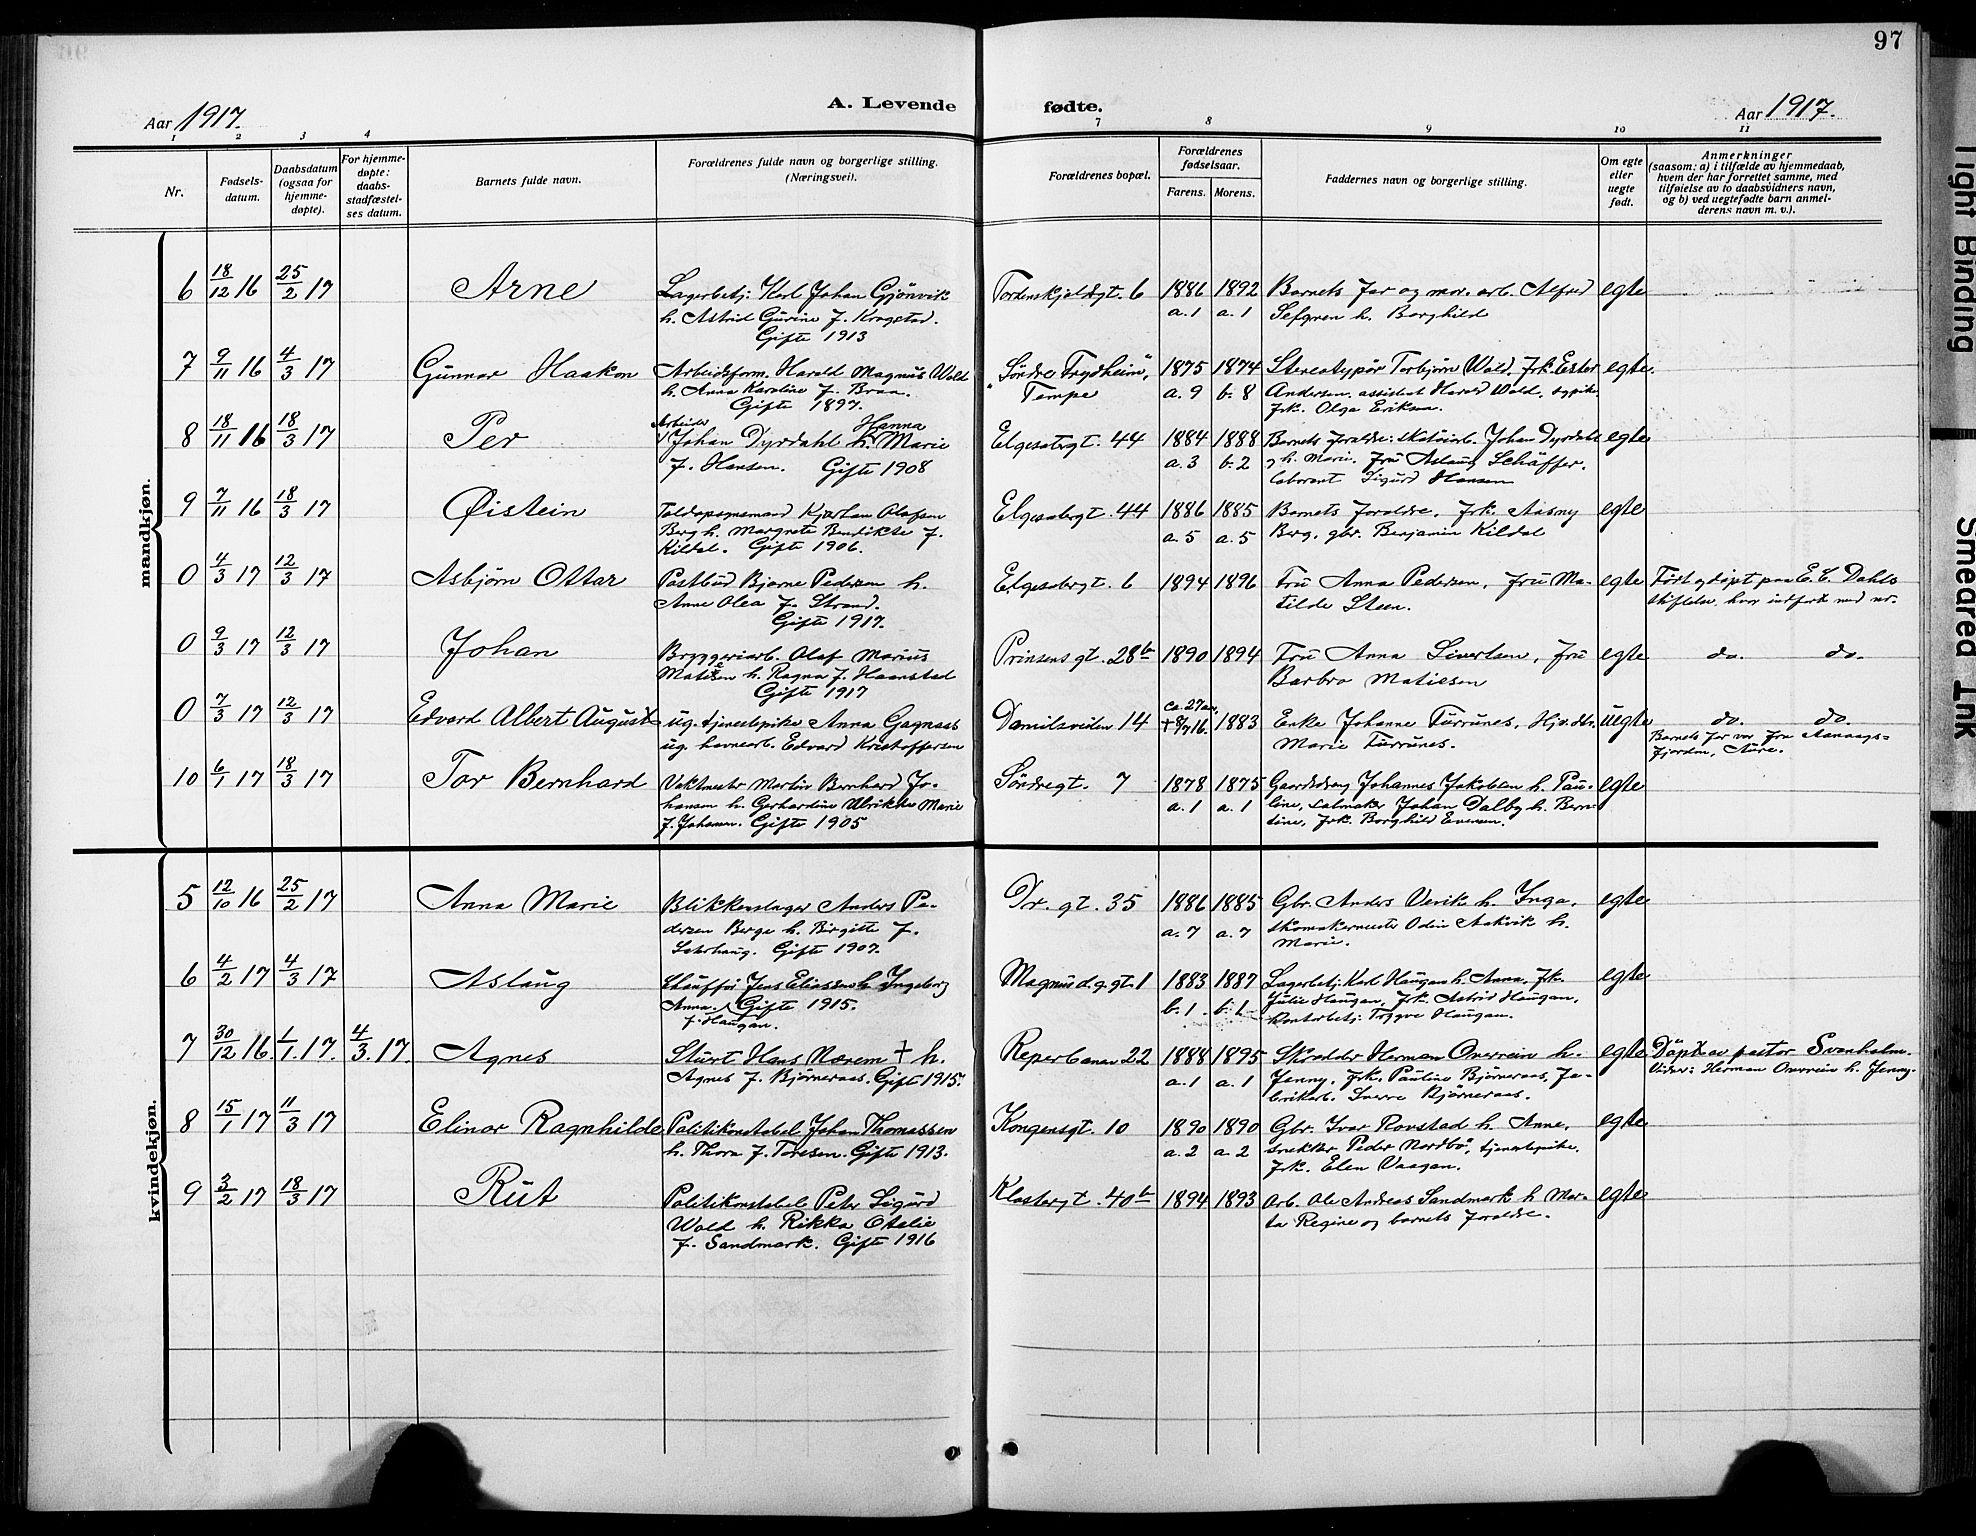 97
Aar 1917.
A. Levende fødte.
Aar 1917.
1 2 3 4 7 8 9 10 11
Nr.
Fødsels-
datum.
Daabsdatum
(ogsaa for
hjemme-
døpte).
For hjemme-
døpte:
daabs-
stadfæstel-
ses datum.
Barnets fulde navn.
Forældrenes fulde navn og borgerlige stilling.
(Næringsvei).
Forældrenes bopæl.
Forældrenes
fødselsaar.
Farens. Morens.
Faddernes navn og borgerlige stilling.
Om egte
eller
uegte
født.
Anmerkninger
(saasom: a) i tilfælde av hjemmedaab,
hvem der har forrettet samme, med
tilføielse av to daabsvidners navn,
og b) ved uegtefødte barn anmel-
derens navn m. v.).
mandkjøn.
6 18/12 16 25/2 17 Arne Lagerbetj. Karl Johan Gjönvik Tordenskjoldsgt. 6 1886 1892 Barnets far og mor. arb. Alfred egte
h. Astrid Gurine f. Kragstad. a. 1 a. 1 h. Borghild
Gifte 1913
7 9/11 16 4/3 17 Gunnar Haakon Arbeidsform. Harald Magnus Wold "Söndre Frydheim", 1875 1874 Stereotypör Torbjörn Wold. Frk. Ester egte.
h. Anna Karoline f. Braa. Tempe a. 9 b. 8 Andersen. assistent Harald Wold,
Gifte 1897. frk. Olga Eriksen.
8 18/11 16 18/3 17 Per Arbeider Johan Dyrdahl h. Hanna Marie Elgesetergt. 44 1884 1888 Barnets foreldre: skotöiarb. Johan Dyrdahl egte
f. Hansen. Gifte 1908 a. 3 b. 2 og h. Marie. fru Aslaug Schäffer.
laborant Sigurd Hansen
9 7/11 16 18/3 17 Øistein Toldopsynsmand Olafsen Elgesetergt. 44 1886 1885 Barnets foreldre, frk. Aasny egte
Berg h. Margrete Bendikte f. a. 5 a. 5 Berg, gbr. Benjamin Kildal
Kildal. Gifte 1906.
0 4/3 17 12/3 17 Asbjörn Ottar Postbud Bjarne Pedersen h. Elgesetergt. 6 1894 1896 Fru Anna Pedersen, fru Ma- egte Födt og döpt paa E. C. Dahls
Anne Olea f. Strand. tilde Steen. stiftelse, hvor indfört med nr.
Gifte 1917.
0 9/3 17 12/3 17 Johan Bryggeriarb. Olaf Marius Prinsensgt. 28b 1890 1894 Fru Anna Sivertsen, fru egte do. do.
Matisen h. Ragna f. Haanstad Barbro Matiesen
Gifte 1917
0 7/3 17 12/3 17 Edvard Albert August ug. tjenestepike Anna Gagnaas Damilsveien 14 ca. 27 aar, 1883 Enke Johanne Furrunes, uegte do. do.
ug. havnearb. Edvard Kristoffersen † 8/7 16. Marie Furrunes. Barnets far var fra
fjorden, Aure.
10 6/1 17 18/3 17 Tor Bernhard Vaktmester Martin Bernhard Jo- Söndregt. 7 1878 1875 Gaardsbr. Johannes Jakobsen h. Pau- egte
hansen h. Gerhardine Ulrikke Marie a. 1 a. 1 line, salmaker Johan Dalby h. Bern-
f. Johansen. Gifte 1905 tine, frk. Borghild Evensen.
kvindekjøn.
5 12/10 16 25/2 17 Anna Marie Blikkenslager Anders Pe- Dr. gt. 35 1886 1885 Gbr. Anders Vevik h. Inga, egte
dersen Berge h. Birgitte f. a. 7 a. 7 skomakermester Odin Aakvik h.
Gifte 1907. Marie.
6 4/2 17 4/3 17 Aslaug Chaufför Jens Eliassen h. Ingeborg Magnus d. g. gt. 1 1883 1887 Lagerbetj. Karl Haugan h. Anna, frk. egte
Anna f. Haugan. Gifte 1915. b. 1 b. 1 Julie Haugan, frk. Astrid Haugan,
kontorbetj. Trygve Haugan.
7 30/12 16. 1/1 17. 4/3 17. Agnes Stuert Hans Nærem † h. Reperbanen 22 1888 1895 Skredder Herman Overrein h. egte Döpt av pastor Svenholm.
Agnes f. Björneraas. Gifte 1915. a. 1 a. 1 Jenny, frk. Pauline Björneraas, fa- Vidner: Herman Overrein h. Jenny.
brikarb. Sverre Björneraas.
8 15/1 17 11/3 17 Elinor Ragnhilde Politikonstabel Johan Thomassen Kongensgt. 10 1890 1890 Gbr. Ivar Rovstad h. Anne, egte
h. Thora f. Toresen. Gifte 1913. a. 2 a. 2 snekker Peder Nordbö, tjenestepike,
frk. Elen Vaagan.
9 3/2 17 18/3 17 Rut Politikonstabel Peter Sigurd Klostergt. 40b 1894 1893 Arb. Ole Andreas Sandmark h. Mar- egte
Wold h. Rikka Otalie ta Regine og barnets foreldre.
f. Sandmark. Gifte 1916
Tight Binding
Smeared Ink